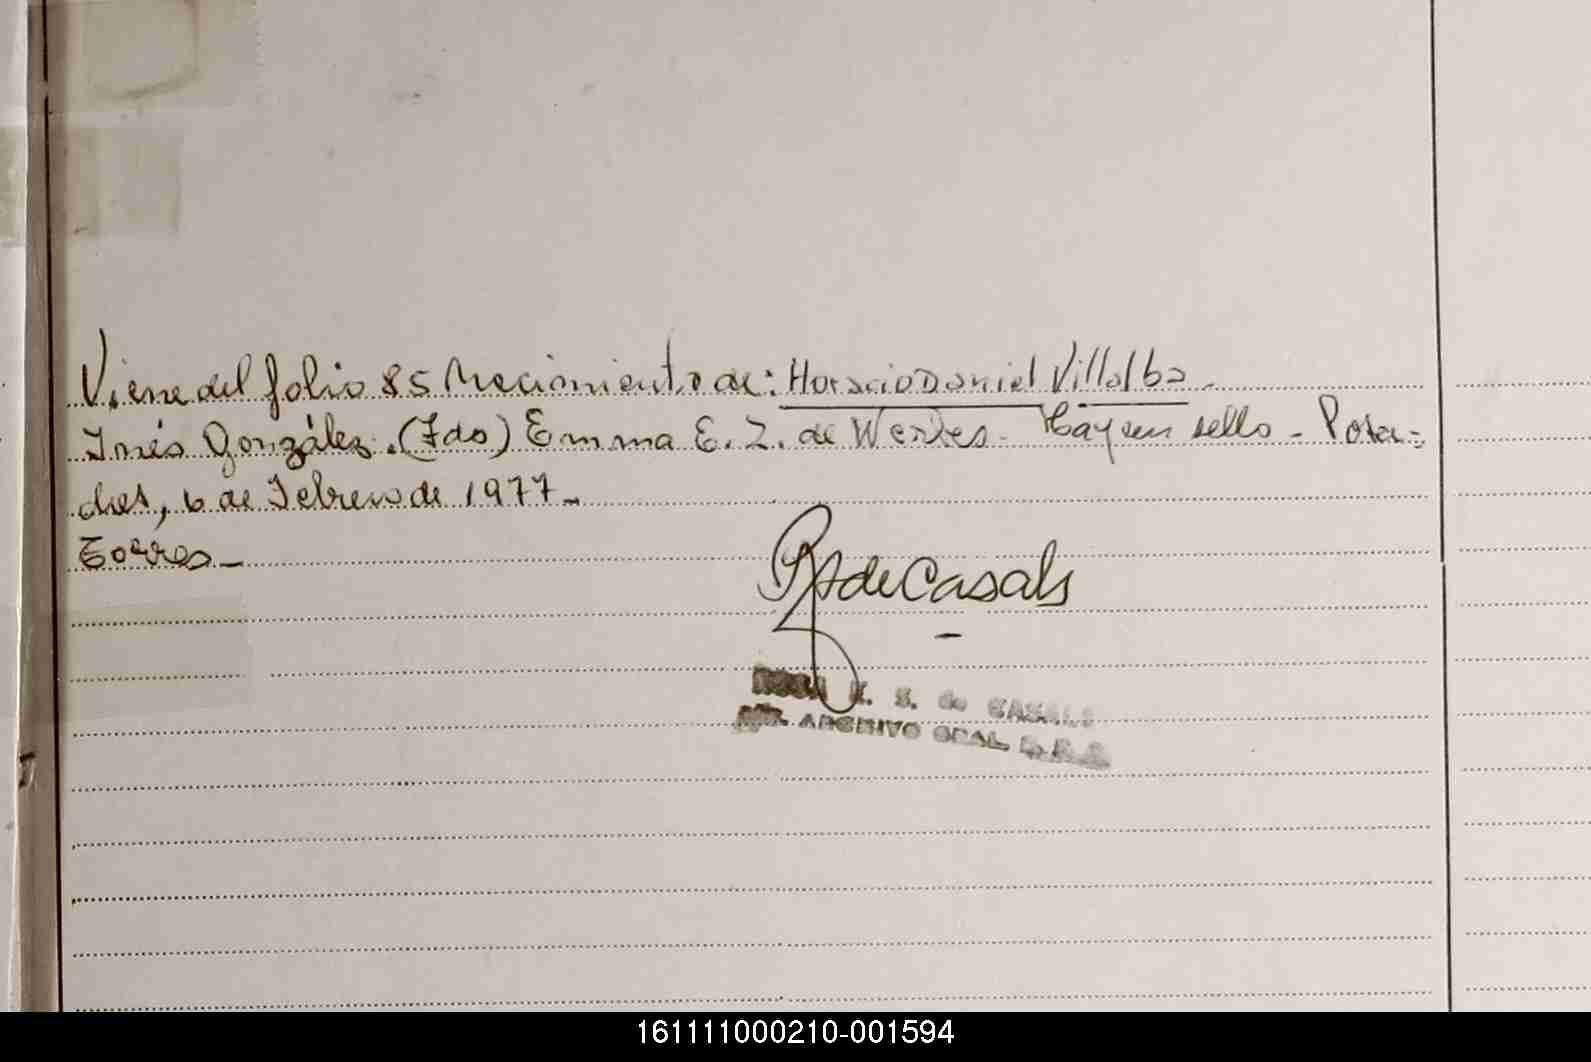 Viene del folio 85 Nacimiento de: Horacio Daniel Villalba
Inés González. (Fdo) Emma E. Z. de Wertes - Hay un sello - Posa-
das, 6 de Febrero de 1977 -
Torres -
de Casals
S. de CASALS
ARCHIVO GRAL.
161111000210-001594